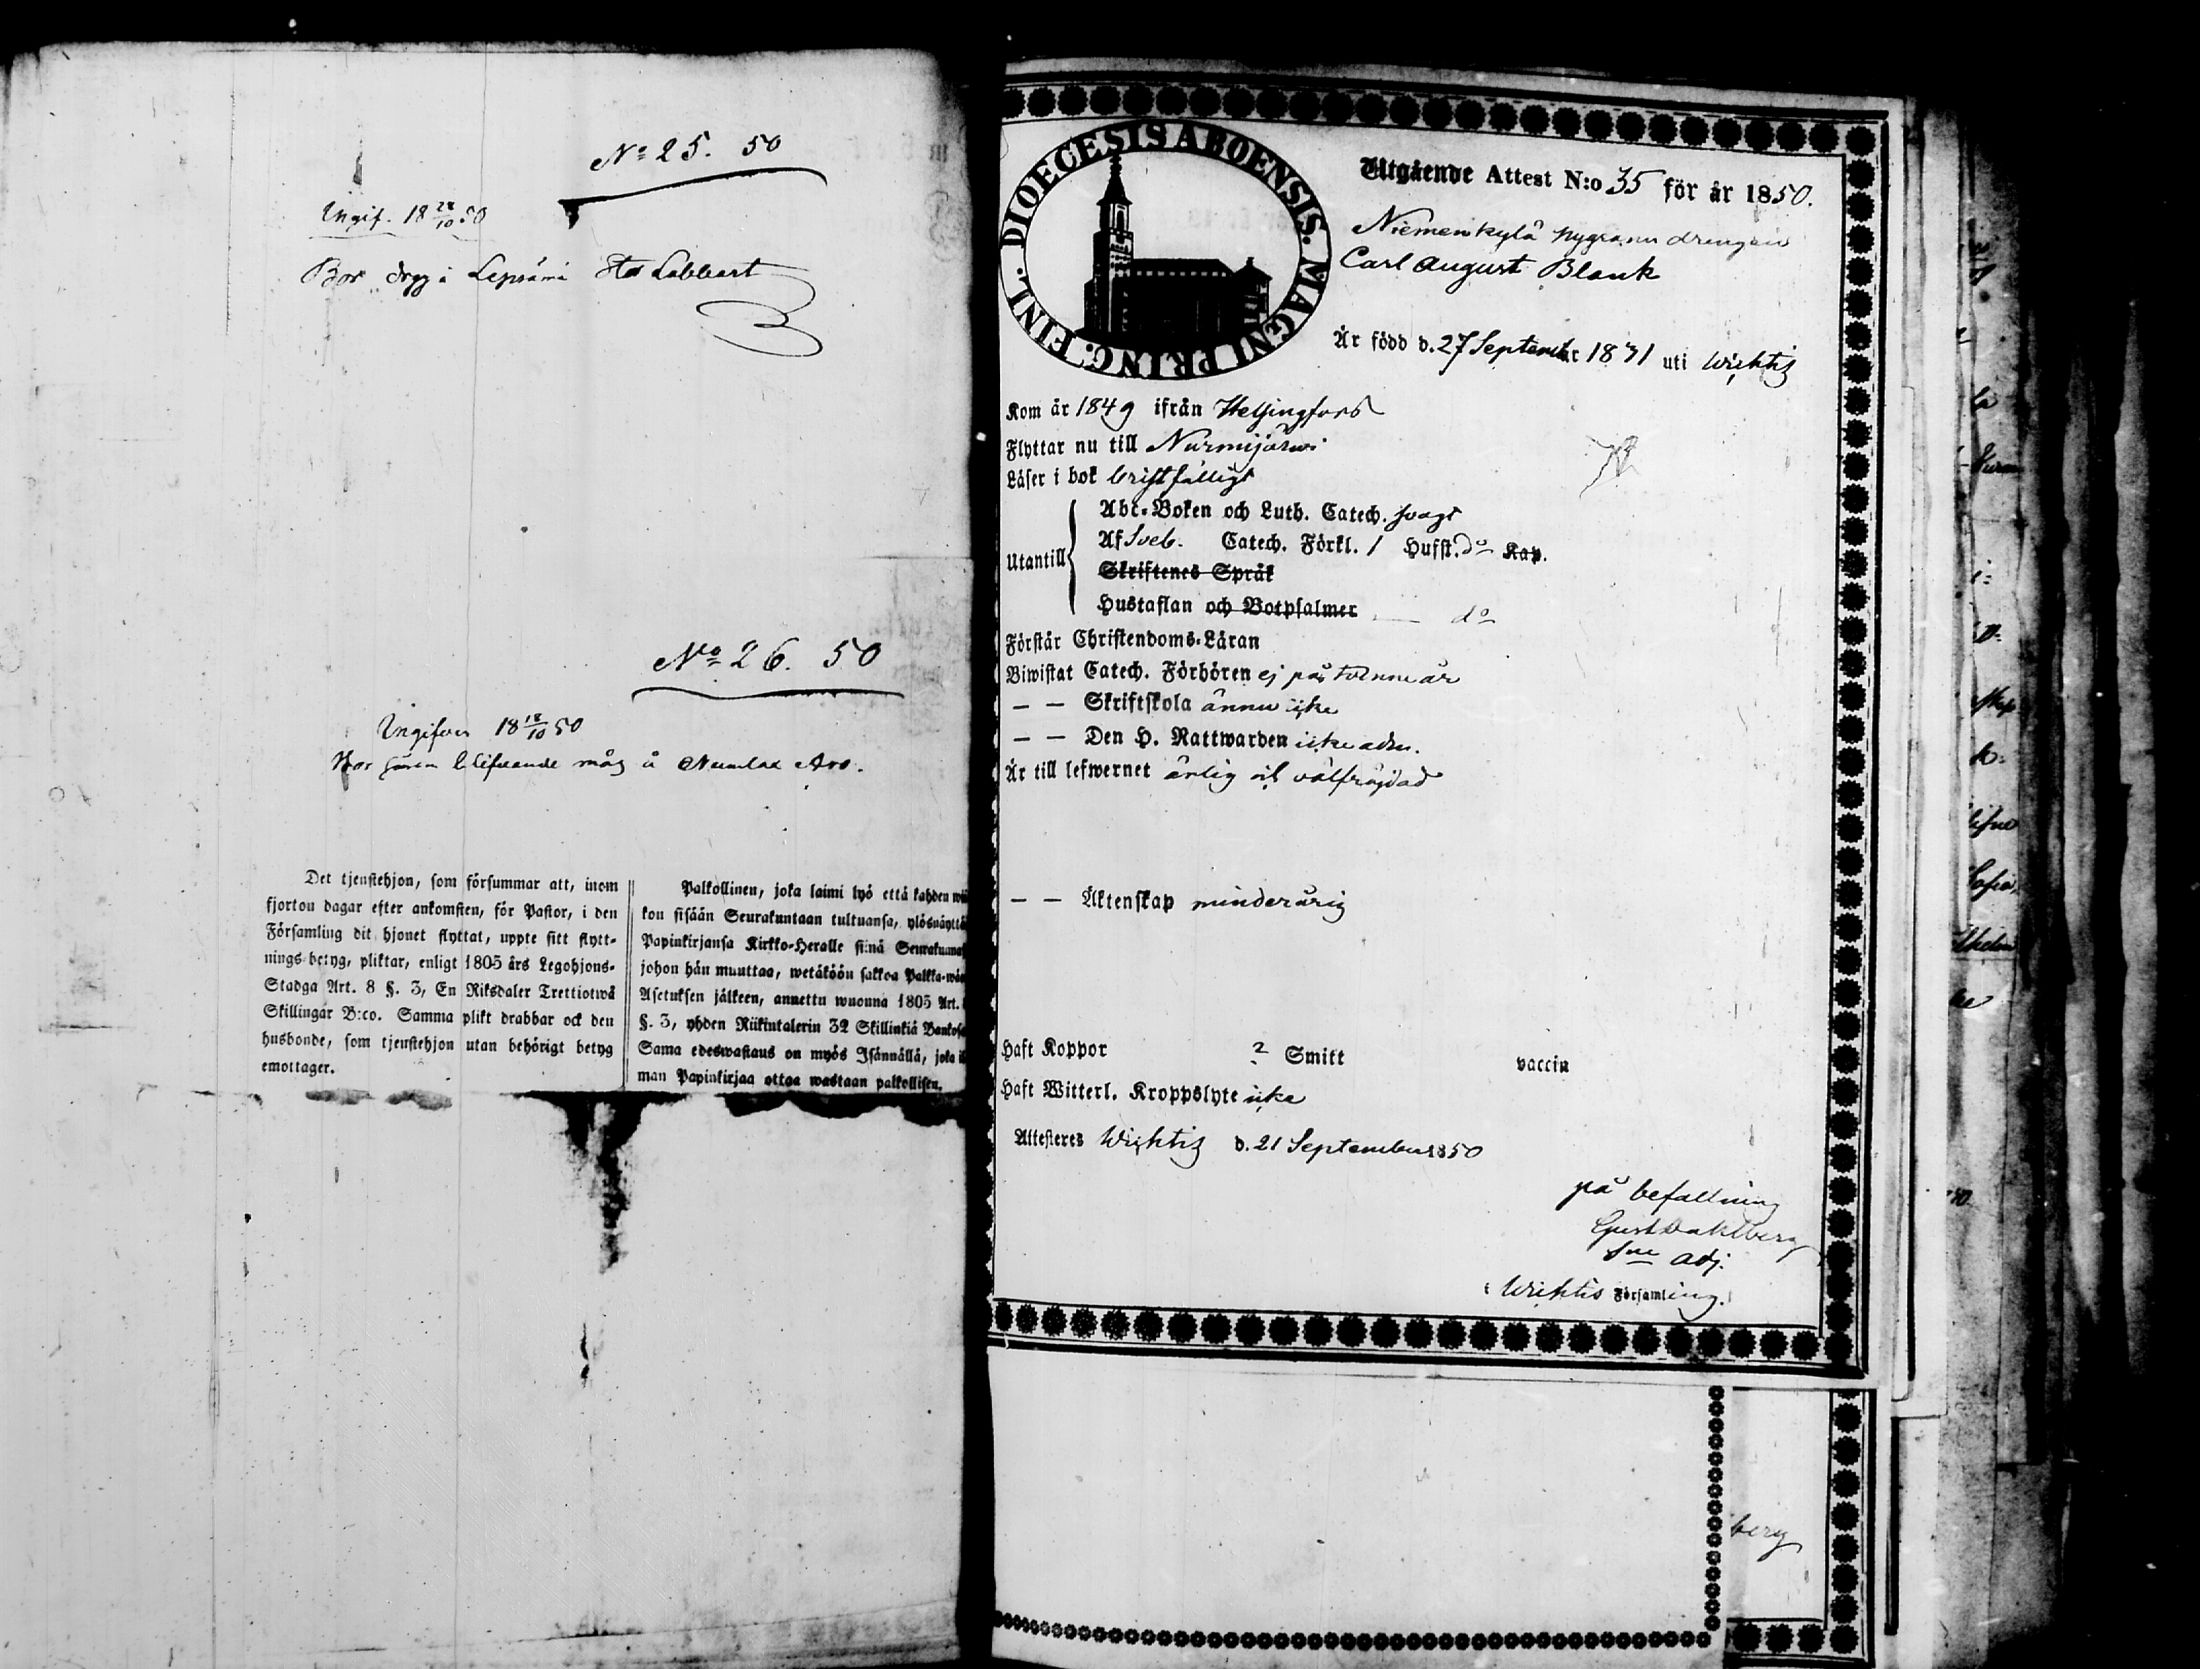 No 25. 50
Ingif. 18 28/10 50
Bor å Lepsämä Hos Labbart
No 26. 50
Ingifven 18 18/10 50
måg å Numlax Aro.
Det tjenstehjon, som försummar att, inom
fjorton dagar efter ankomsten, för Pastor, i den
Församling dit hjonet flyttat, uppte sitt flytt-
nings-betyg, pliktar, enligt 1805 års Legohjons-
Stadga Art. 8 §. 3, En Riksdaler Trettiotwå
Skillingar B:co. Samma plikt drabbar ock den
husbonde, som tjenstehjon utan behörigt betyg
emottager.
Palkollinen, joka laimi lyö että kahden wii
kon sisään Seurakuntaan tultuansa, ylösnäyttä
Papinkirjansa Kirkko-Heralle siinä Seurakunnas
johon hän muuttaa, wetäköön sakkoa Palkka-wäe
Asetuksen jälkeen, annettu wuonna 1805 Art.
§. 3, yhden Riikintalerin 32 Skillinkiä Bankosa
Sama edeswastaus on myös Isännällä, joka il
man Papinkirjaa ottaa wastaan palkollisen.
DIOECESIS ABOENSIS. MAGNI PRINC. FINL.
Utgående Attest N:o 35 för år 1850.
Niemenkylä nygrann drengen
Carl August Blank
Är född d. 27 September 1831 uti Wichtis
Kom år 1849 ifrån Helsingfors
Flyttar nu till Nurmijärwi
Läser i bok bristfälligt
Utantill
Abc-Boken och Luth. Catech. svagt
Af Sveb. Catech. Förkl. 1 Hufst. do Kap.
Skriftenes Språk
Hustaflan och Botpsalmer do
Förstår Christendoms-Läran
Biwistat Catech. Förhören ej på tvenne år
— — Skriftskola ännu icke
— — Den H. Nattwarden icke adm.
Är till lefwernet ärlig och välfrägdad
— — Äktenskap minderårig
Haft Koppor ? Smitt vaccin
Haft Witterl. Kroppslyte icke
Attesteres Wichtis d. 21 September 1850
på befallning
Gust Dahlberg
Sne Adj.
i Wichtis Församling.
berg